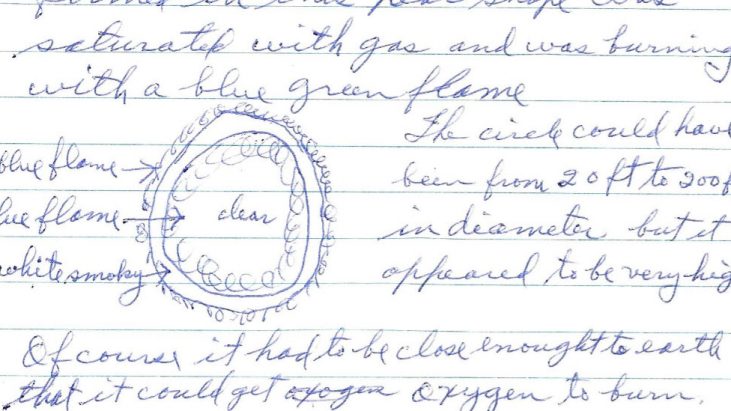 formed in this pear shape was
saturated with gas and was burning
with a blue green flame
The circle could have
blue flame
been from 20 ft to 200 f
blue flame
clear
in diameter but it
white smoky
appeared to be very hig
Of course it had to be close enought to earth
that it could get oxogen oxygen to burn.